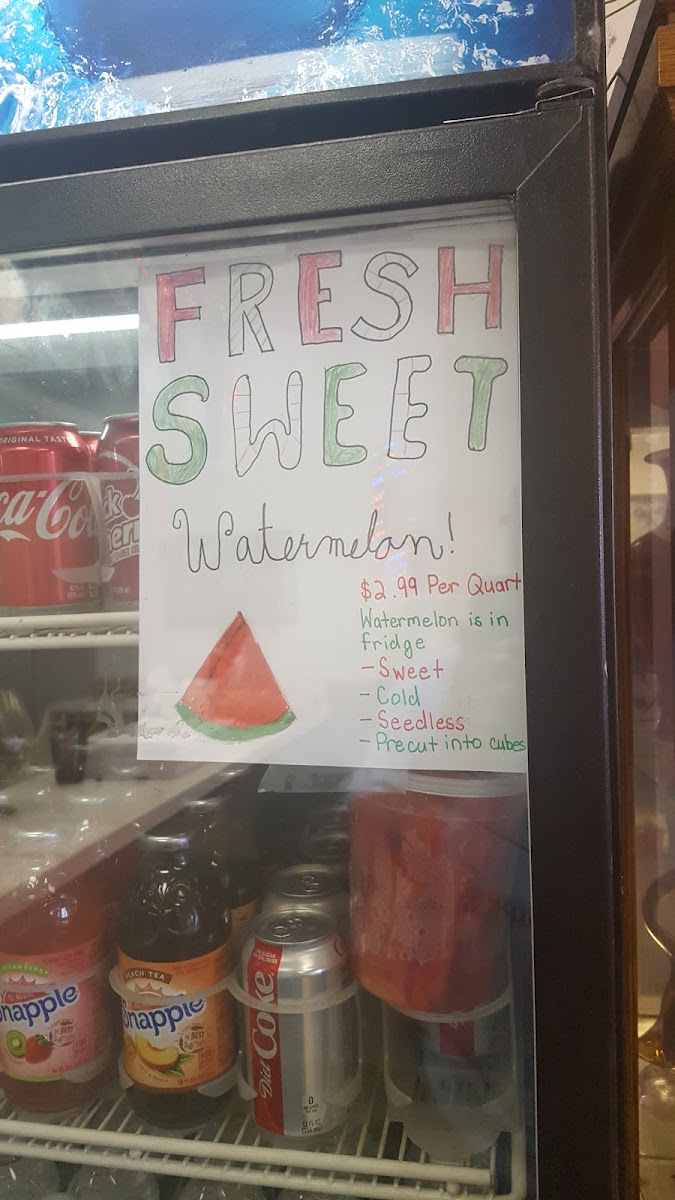 FRESH
SWEET
Watermelon!
$2.99 Per Quart
Watermelon is in
fridge
- Sweet
- Cold
- Seedless
- Precut into cubes
ORIGINAL TASTE
STRAWBERRY
Snapple
PEACH TEA
Snapple
Diet Coke
0